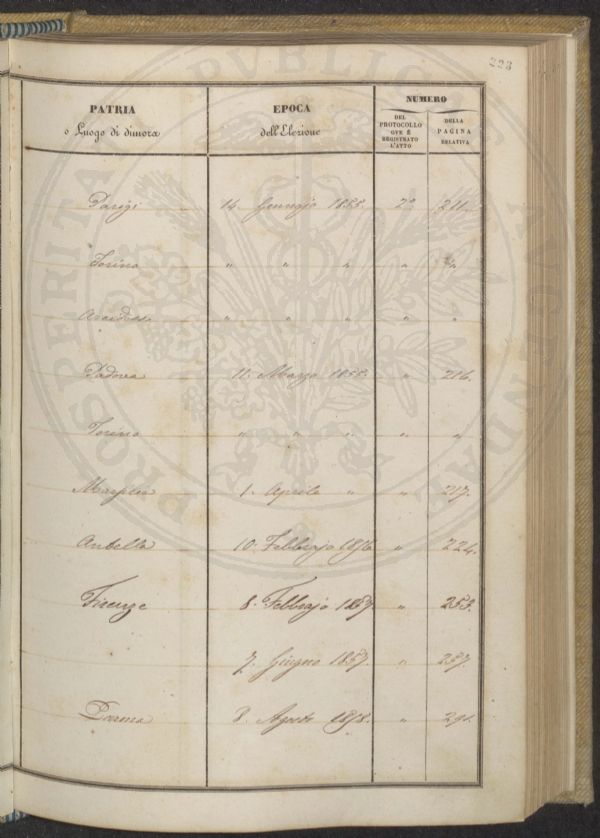 223
PATRIA
o Luogo di dimora
EPOCA
dell'Elezione
NUMERO
DEL
PROTOCOLLO
OVE È
REGISTRATO
L'ATTO
DELLA
PAGINA
RELATIVA
Parigi 14. Gennajo 1855. 2° 211.
Torino " " " " "
" " " " "
Padova 11. Marzo 1855. " 216.
Torino " " " " "
1. Aprile " " 217.
Antella 10. Febbrajo 1856 " 224.
Firenze 8. Febbrajo 1857 " 253.
7. Giugno 1857. " 257.
Parma 8. Agosto 1858. "
PUBLICAE
PROSPERITATI
AUGENDAE